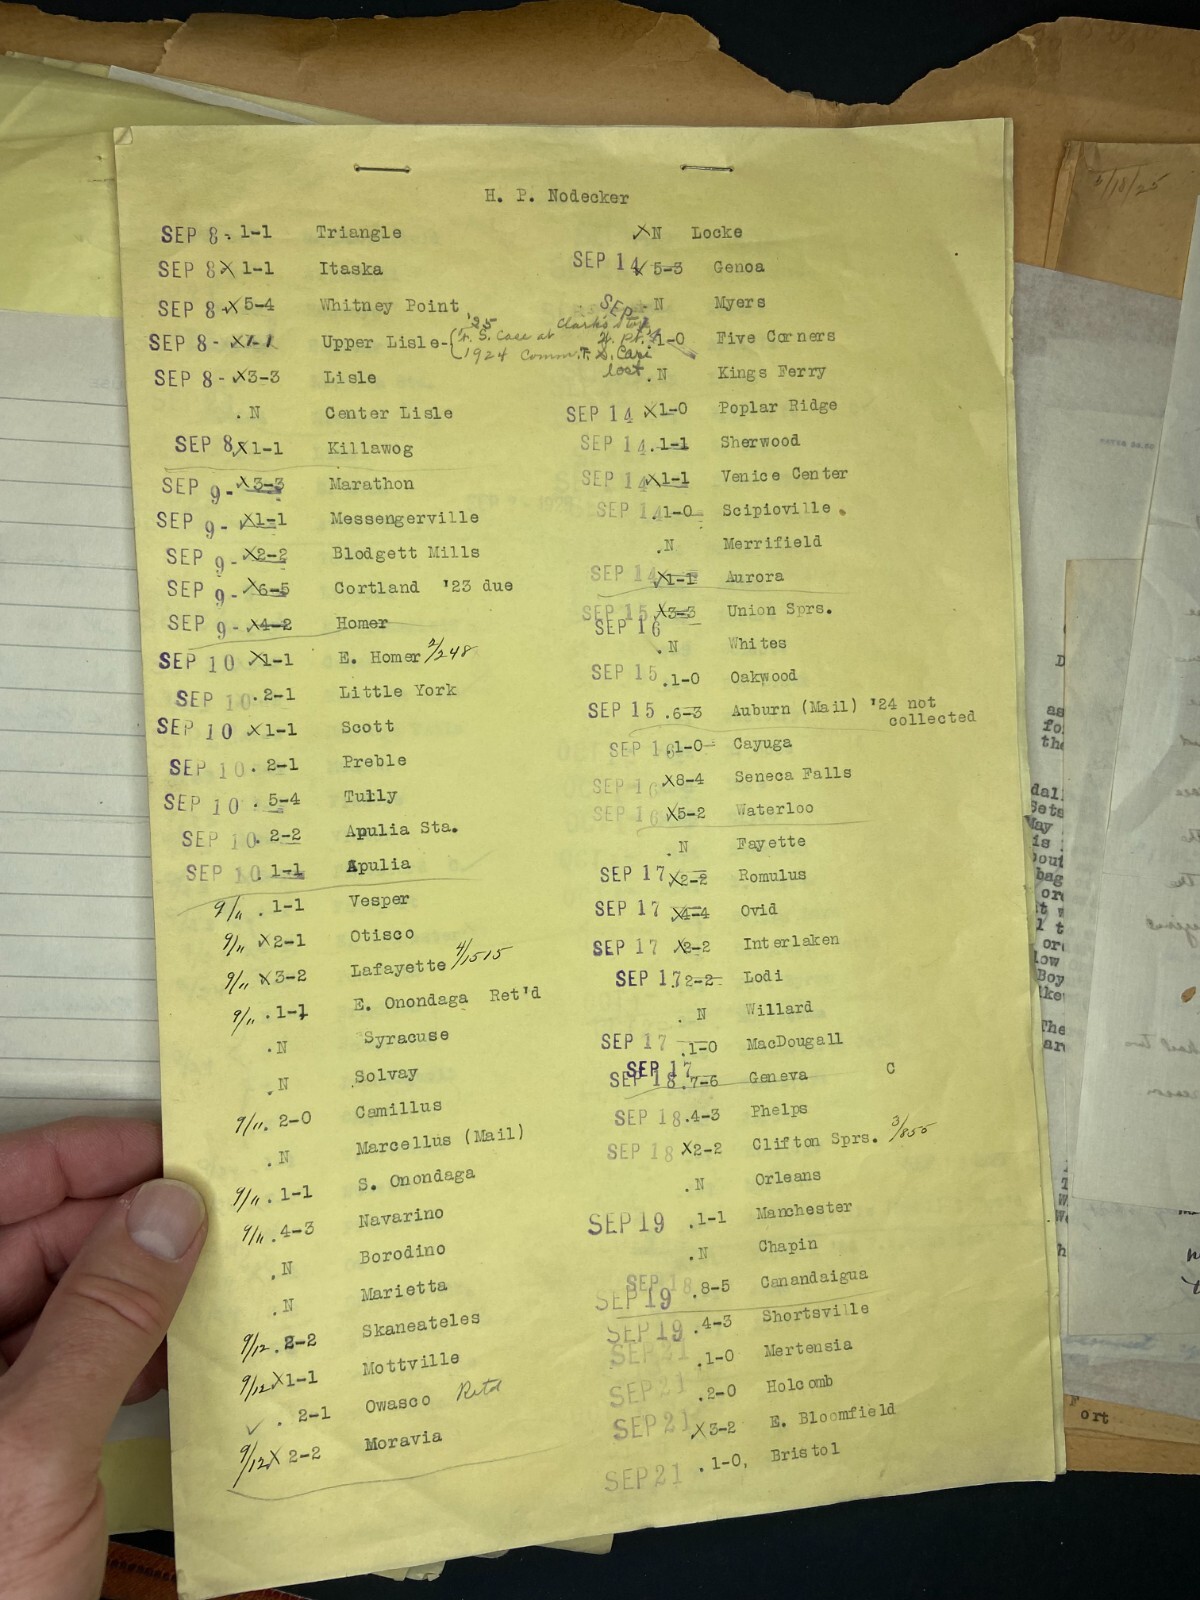 H. P. Nodecker
SEP 8. 1-1 Triangle
SEP 8 X 1-1 Itaska
SEP 8 X 5-4 Whitney Point
SEP 8 - X 1-1 Upper Lisle - '25 F. S. Case at Clark's
1924 Comm. F. S. Case lost
SEP 8 - X3-3 Lisle
. N Center Lisle
SEP 8 X 1-1 Killawog
SEP 9 - X3-3 Marathon
SEP 9 - X1-1 Messengerville
SEP 9 - X2-2 Blodgett Mills
SEP 9 - X6-5 Cortland '23 due
SEP 9 - X4-2 Homer
SEP 10 X1-1 E. Homer 2/248
SEP 10 . 2-1 Little York
SEP 10 X1-1 Scott
SEP 10 . 2-1 Preble
SEP 10 . 5-4 Tully
SEP 10 . 2-2 Apulia Sta.
SEP 10 . 1-1 Apulia
9/11 . 1-1 Vesper
9/11 X2-1 Otisco
9/11 X3-2 Lafayette 4/1515
9/11 . 1-1 E. Onondaga Ret'd
. N Syracuse
. N Solvay
9/11 . 2-0 Camillus
. N Marcellus (Mail)
9/11 . 1-1 S. Onondaga
9/11 . 4-3 Navarino
. N Borodino
. N Marietta
9/12 . 2-2 Skaneateles
9/12 X1-1 Mottville
✓ . 2-1 Owasco Retd
9/12 X 2-2 Moravia
XN Locke
SEP 14 X 5-3 Genoa
SEP . N Myers
1-0 Five Corners
. N Kings Ferry
SEP 14 X1-0 Poplar Ridge
SEP 14 . 1-1 Sherwood
SEP 14 X1-1 Venice Center
SEP 14 . 1-0 Scipioville
. N Merrifield
SEP 14 X1-1 Aurora
SEP 15 X3-3 Union Sprs.
SEP 16
. N Whites
SEP 15 . 1-0 Oakwood
SEP 15 . 6-3 Auburn (Mail) '24 not
collected
SEP 16 . 1-0 Cayuga
SEP 16 X8-4 Seneca Falls
SEP 16 X5-2 Waterloo
. N Fayette
SEP 17 X2-2 Romulus
SEP 17 X4-4 Ovid
SEP 17 X2-2 Interlaken
SEP 17 . 2-2 Lodi
. N Willard
SEP 17 . 1-0 MacDougall
SEP 17
SEP 18 . 7-6 Geneva C
SEP 18 . 4-3 Phelps
SEP 18 X2-2 Clifton Sprs. 3/855
. N Orleans
SEP 19 . 1-1 Manchester
. N Chapin
SEP 18
SEP 19 . 8-5 Canandaigua
SEP 19 . 4-3 Shortsville
SEP 21 . 1-0 Mertensia
SEP 21 . 2-0 Holcomb
SEP 21 X3-2 E. Bloomfield
SEP 21 . 1-0, Bristol
5/18/25
ort